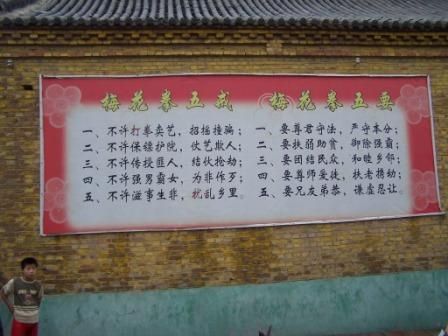 梅花拳五戒
一、不许打拳卖艺，招摇撞骗；
二、不许保镖护院，仗艺欺人；
三、不许传授匪人，结伙抢劫；
四、不许强男霸女，为非作歹；
五、不许滋事生非，扰乱乡里。
梅花拳五要
一、要尊君守法，严守本分；
二、要扶弱助贫，御除强霸；
三、要团结民众，和睦乡邻；
四、要尊师爱徒，扶老携幼；
五、要兄友弟恭，谦虚忍让。